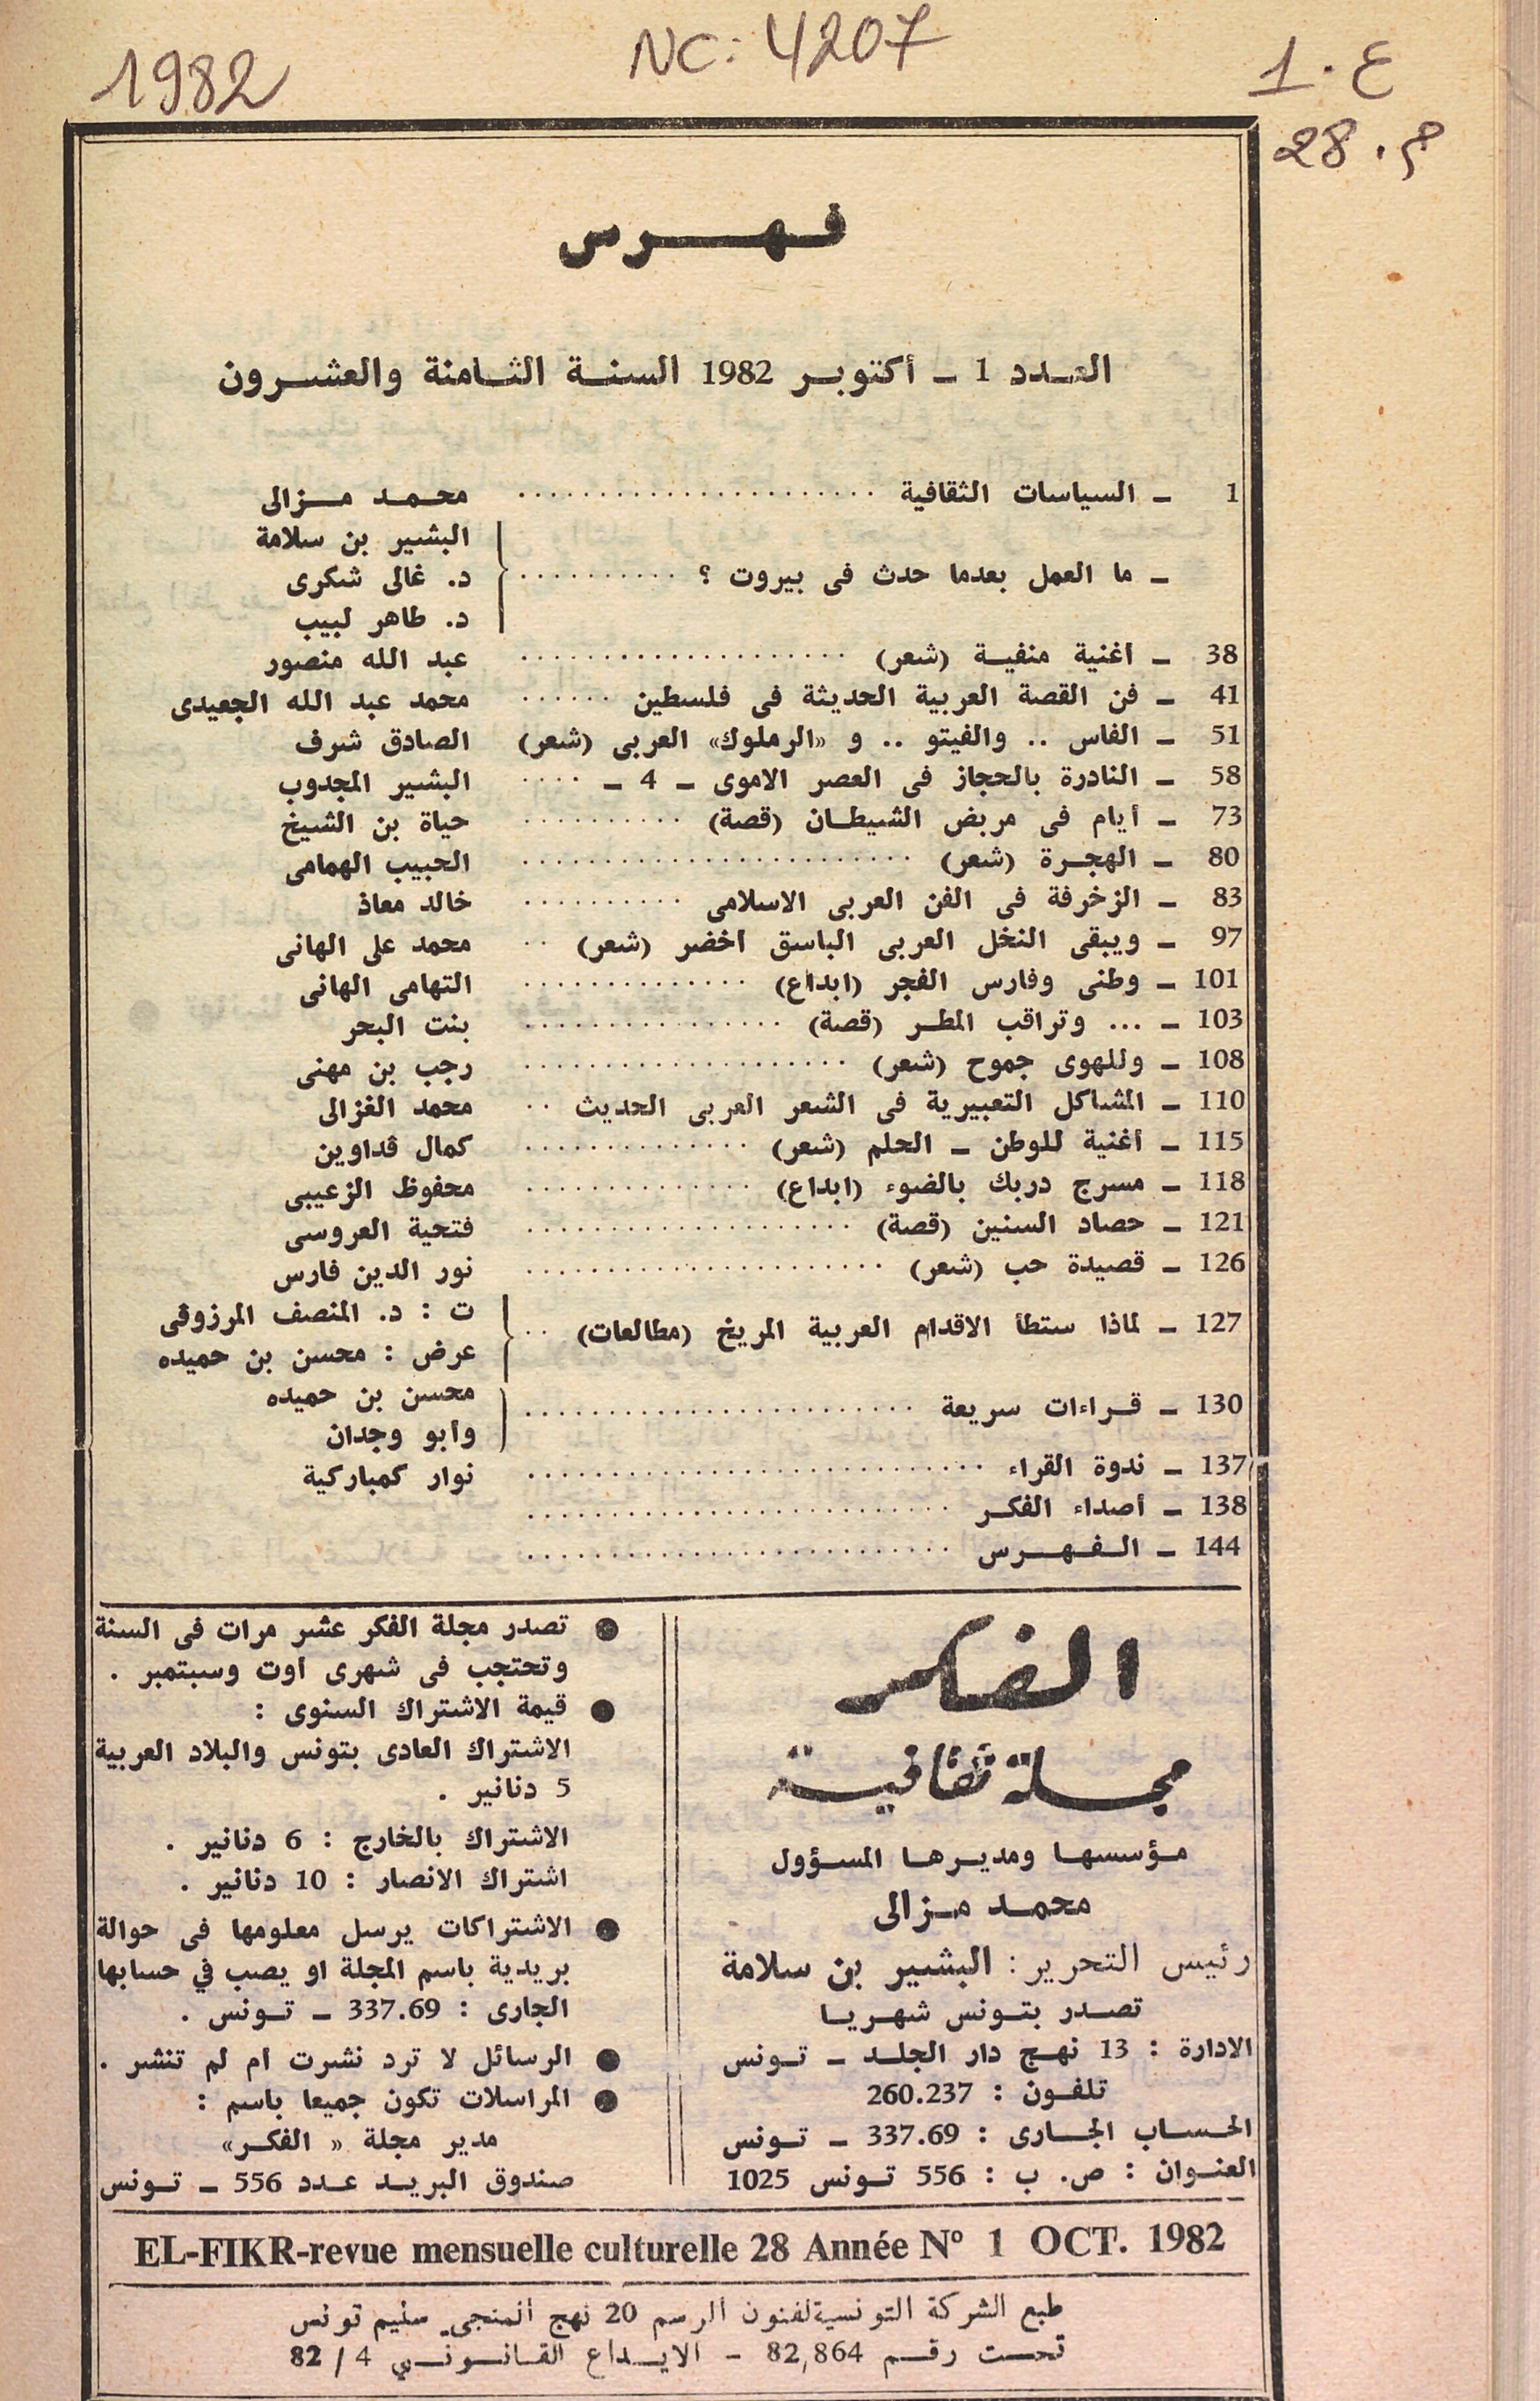 1982
NC: 4207
ع. 1
م. 28
فهرس
العدد 1 ـ أكتوبر 1982 السنة الثامنة والعشرون
1 ـ السياسات الثقافية ...................... محمد مزالى
البشير بن سلامة
ـ ما العمل بعدما حدث فى بيروت ؟ .......... د. غالى شكرى
د. طاهر لبيب
38 ـ أغنية منفية (شعر) .................... عبد الله منصور
41 ـ فن القصة العربية الحديثة فى فلسطين ...... محمد عبد الله الجعيدى
51 ـ الفاس .. والفيتو .. و «الرملوك» العربى (شعر) الصادق شرف
58 ـ النادرة بالحجاز فى العصر الاموى ـ 4 ـ .... البشير المجدوب
73 ـ أيام فى مربض الشيطان (قصة) .......... حياة بن الشيخ
80 ـ الهجرة (شعر) ........................ الحبيب الهمامى
83 ـ الزخرفة فى الفن العربى الاسلامى .......... خالد معاذ
97 ـ ويبقى النخل العربى الباسق أخضر (شعر) .. محمد على الهانى
101 ـ وطنى وفارس الفجر (ابداع) .............. التهامى الهانى
103 ـ ... وتراقب المطر (قصة) ................ بنت البحر
108 ـ وللهوى جموح (شعر) .................... رجب بن مهنى
110 ـ المشاكل التعبيرية فى الشعر العربى الحديث .. محمد الغزالى
115 ـ أغنية للوطن ـ الحلم (شعر) .............. كمال ڤداوين
118 ـ مسرج دربك بالضوء (ابداع) .............. محفوظ الزعيبى
121 ـ حصاد السنين (قصة) .................... فتحية العروسى
126 ـ قصيدة حب (شعر) ...................... نور الدين فارس
ت : د. المنصف المرزوقى
127 ـ لماذا ستطأ الاقدام العربية المريخ (مطالعات) ..
عرض : محسن بن حميده
محسن بن حميده
130 ـ قراءات سريعة ........................
وأبو وجدان
137 ـ ندوة القراء ............................ نوار كمباركية
138 ـ أصداء الفكر ..........................
144 ـ الفهرس ..........................
الفكر
مجلة ثقافية
مؤسسها ومديرها المسؤول
محمد مزالى
رئيس التحرير : البشير بن سلامة
تصدر بتونس شهريا
الادارة : 13 نهج دار الجلد ـ تونس
تلفون : 260.237
الحساب الجارى : 337.69 ـ تونس
العنوان : ص. ب : 556 تونس 1025
● تصدر مجلة الفكر عشر مرات فى السنة
وتحتجب فى شهرى أوت وسبتمبر .
● قيمة الاشتراك السنوى :
الاشتراك العادى بتونس والبلاد العربية
5 دنانير .
الاشتراك بالخارج : 6 دنانير .
اشتراك الانصار : 10 دنانير .
● الاشتراكات يرسل معلومها فى حوالة
بريدية باسم المجلة او يصب في حسابها
الجارى : 337.69 ـ تونس .
● الرسائل لا ترد نشرت ام لم تنشر .
● المراسلات تكون جميعا باسم :
مدير مجلة « الفكر»
صندوق البريد عدد 556 ـ تونس
EL-FIKR-revue mensuelle culturelle 28 Année N° 1 OCT. 1982
طبع الشركة التونسية لفنون الرسم 20 نهج المنجي سليم تونس
تحت رقم 82,864 - الايداع القانوني 4 / 82